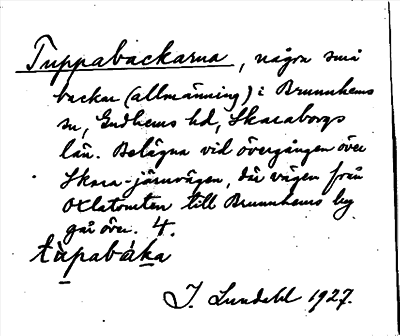 Tuppabackarna, några små
backar (allmänning) i Brunnhems
sn, Gudhems hd, Skaraborgs
län. Belägna vid övergången över
Skara-järnvägen, där vägen från
Oxlatomten till Brunnhems by
går över. 4.
tùpabáka
I. Lundahl 1927.